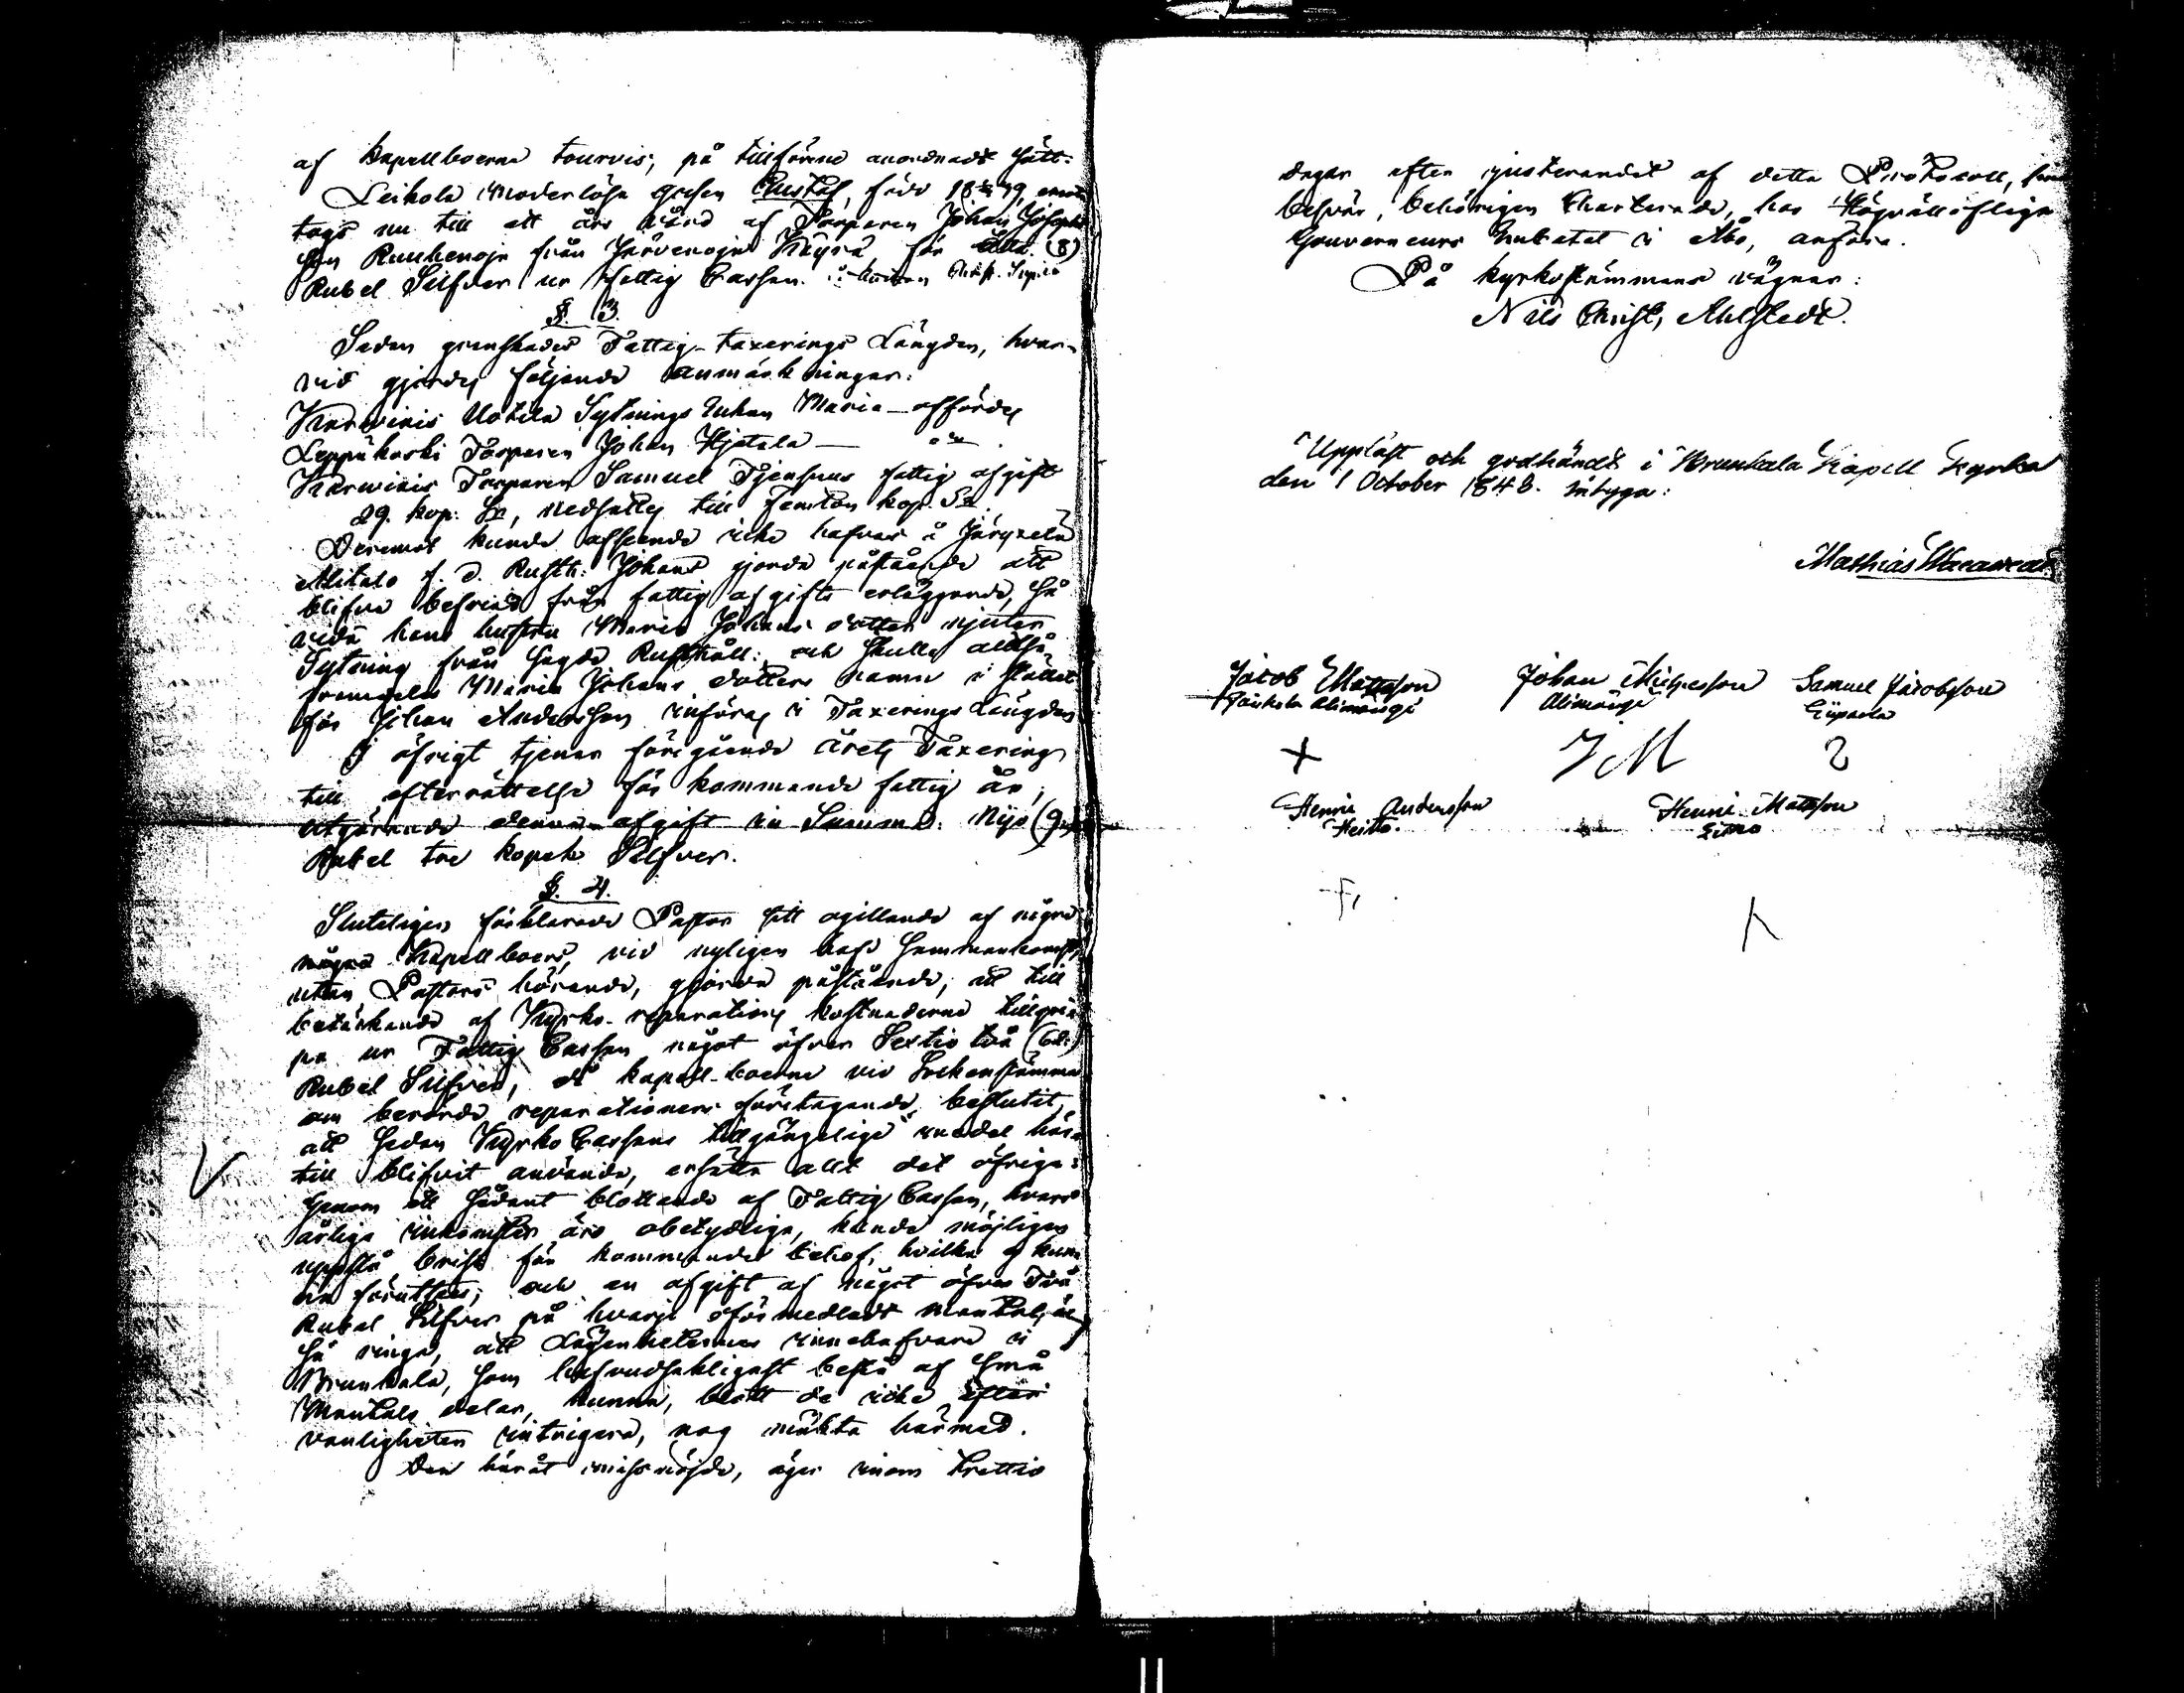 af Kapellboerne tourvis, på tillförene anordnadt sätt.
Leikola moderlösa gossen Gustaf, född 18 39, emot
togs nu till ett års vård af Torparen Johan Josephs
son Ruuhenoja från Järvenoja för åtta (8)
Rubel Silfver ur Fattig Cassan.
§. 3.
Sedan granskades Fattig-taxerings Längden, hvar-
vid gjordes följande anmärkningar:
Karwinis Uotila Sytnings Enkan Maria – affördes
Leppäkoski Torparen Johan Hjetala –
Karwinis Torparen Samuel Tjensuus fattig afgift
29. kop: Sr, nedsattes till femton kop. Sr.
Deremot kunde afseende icke hafvas å
Alitalo f. d. Rusth: Johans gjorda påstående att
blifva befriad från fattig afgifts erläggande, så
vida hans hustru Maria Johans dotter njuter
Sytning från sagde Rusthåll: och skulle alltså
Maria Johans dotters namn i stället
för Johan Andersson införas i Taxerings Längden
I öfrigt tjenar föregående årets Taxering
till efterrättelse för kommande fattig år,
utgörande denna afgift en Summa. Nijo (9
Rubel tre kopek Silfver.
§. 4.
Sluteligen förklarade Pastor sitt ogillande af några
några Kapellboers, vid nyligen hafd Sammankomst,
utan Pastors hörande, gjorda påstående, att till
betäckande af Kyrko-reparations kostnaderna tillgri-
pa ur Fattig Cassan något öfver Sextio två (62.)
Rubel Silfver, då kapell-boerne vid Sockenstämma
om berörde reparationers företagande beslutit,
att sedan Kyrko Cassans tillgängelige medel här
till blifvit använde, ersätta allt det öfriga:
Genom ett sådant blottande af Fattig Cassan, hvars
årliga inkomster äro obetydliga, kunde möjligen
uppstå brist för kommande behof, hvilka ej kunna
förutses; och en afgift af något öfver Två
Rubel Silfver på hvarje oförmedladt mantal, är
så ringa, att Lägenheternes innehafvare i
Brunkala, som hufvudsakligast bestå af små
Mantals delar, kunna, blott de icke efter
vanligheten intrigera, nog mäkta härmed.
Den häråt missnöjde, äger inom trettio
dagar efter justerandet af detta Protocoll, sine
besvär, behörigen Charterade, hos Högvällofliga
Gouverneurs Embetet i Åbo, anföra.
På kyrkostämmans vägnar:
Nils Christ, Ahlstedt.
Uppläst och godkändt i Brunkala Kapell Kyrka
den 1 October 1848. intyga:
Mathias
Jacob Mattsson Johan Michelsson Samuel Jacobsson
Alimängi Alimängi
+ J M 2
Henric Andersson Henric Mattsson
Heitto. Eitto